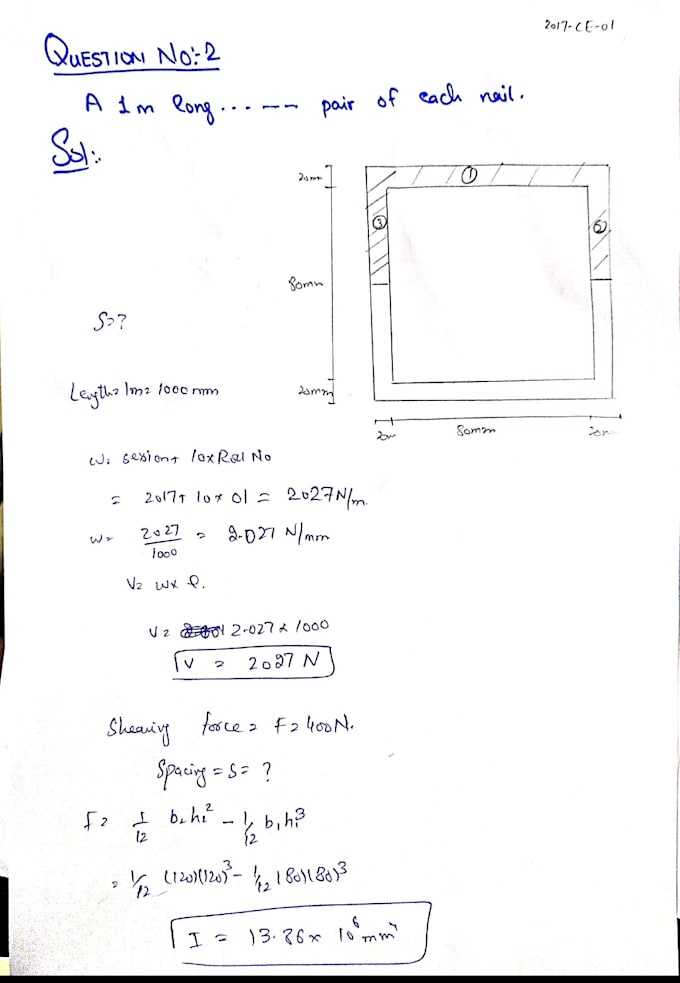 2017-CE-01
QUESTION NO:-2
A 1m long...--- pair of each nail.
Sol:.
20mm
①
③
②
80mm
S=?
Length= 1m= 1000 mm
20mm
20m
80mm
20m
W= session+ 10xRol No
= 2017+ 10x01 = 2027N/m.
W= 2027/1000 = 2.027 N/mm
V= wx l.
V= 2.027 x 1000
V = 2027 N
Shearing force = F= 400N.
Spacing = S= ?
I= 1/12 b₂h₂² - 1/12 b₁h₁³
= 1/12 (120)(120)³ - 1/12 (80)(80)³
I = 13.86x 10⁶mm⁴